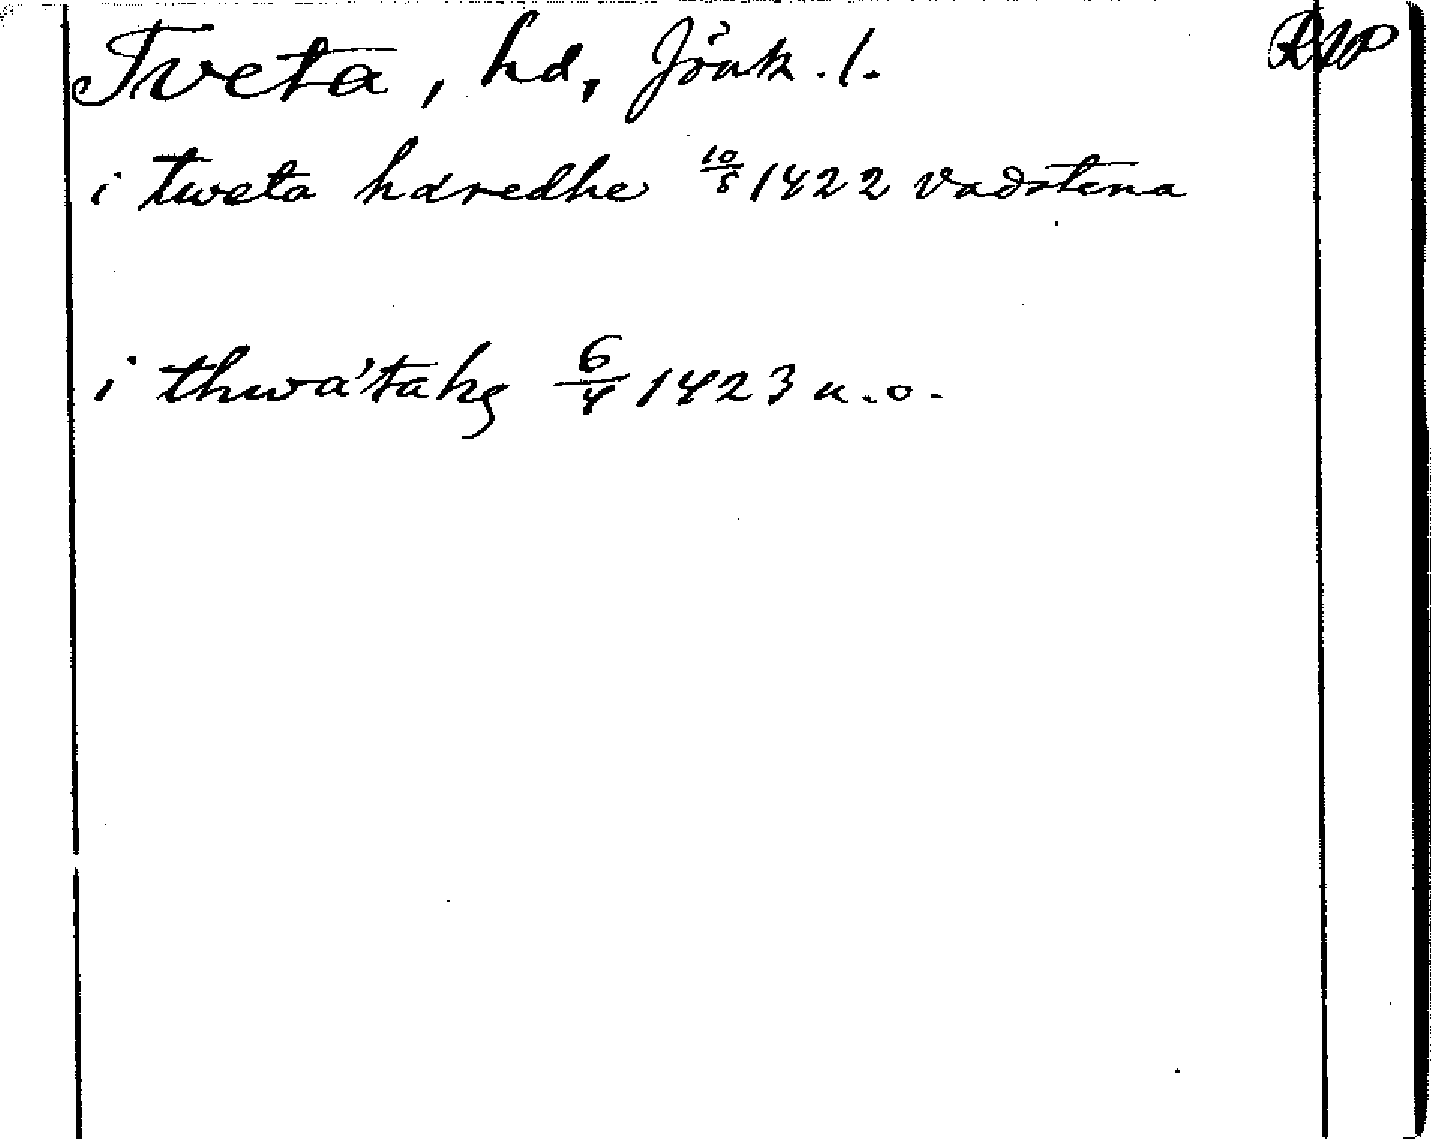 Tveta, hd, Jönk. l. RAP
i tweta hdredhe 10/5 1422 Vadstena
i thwa'ta hg 6/4 1423 u.o.